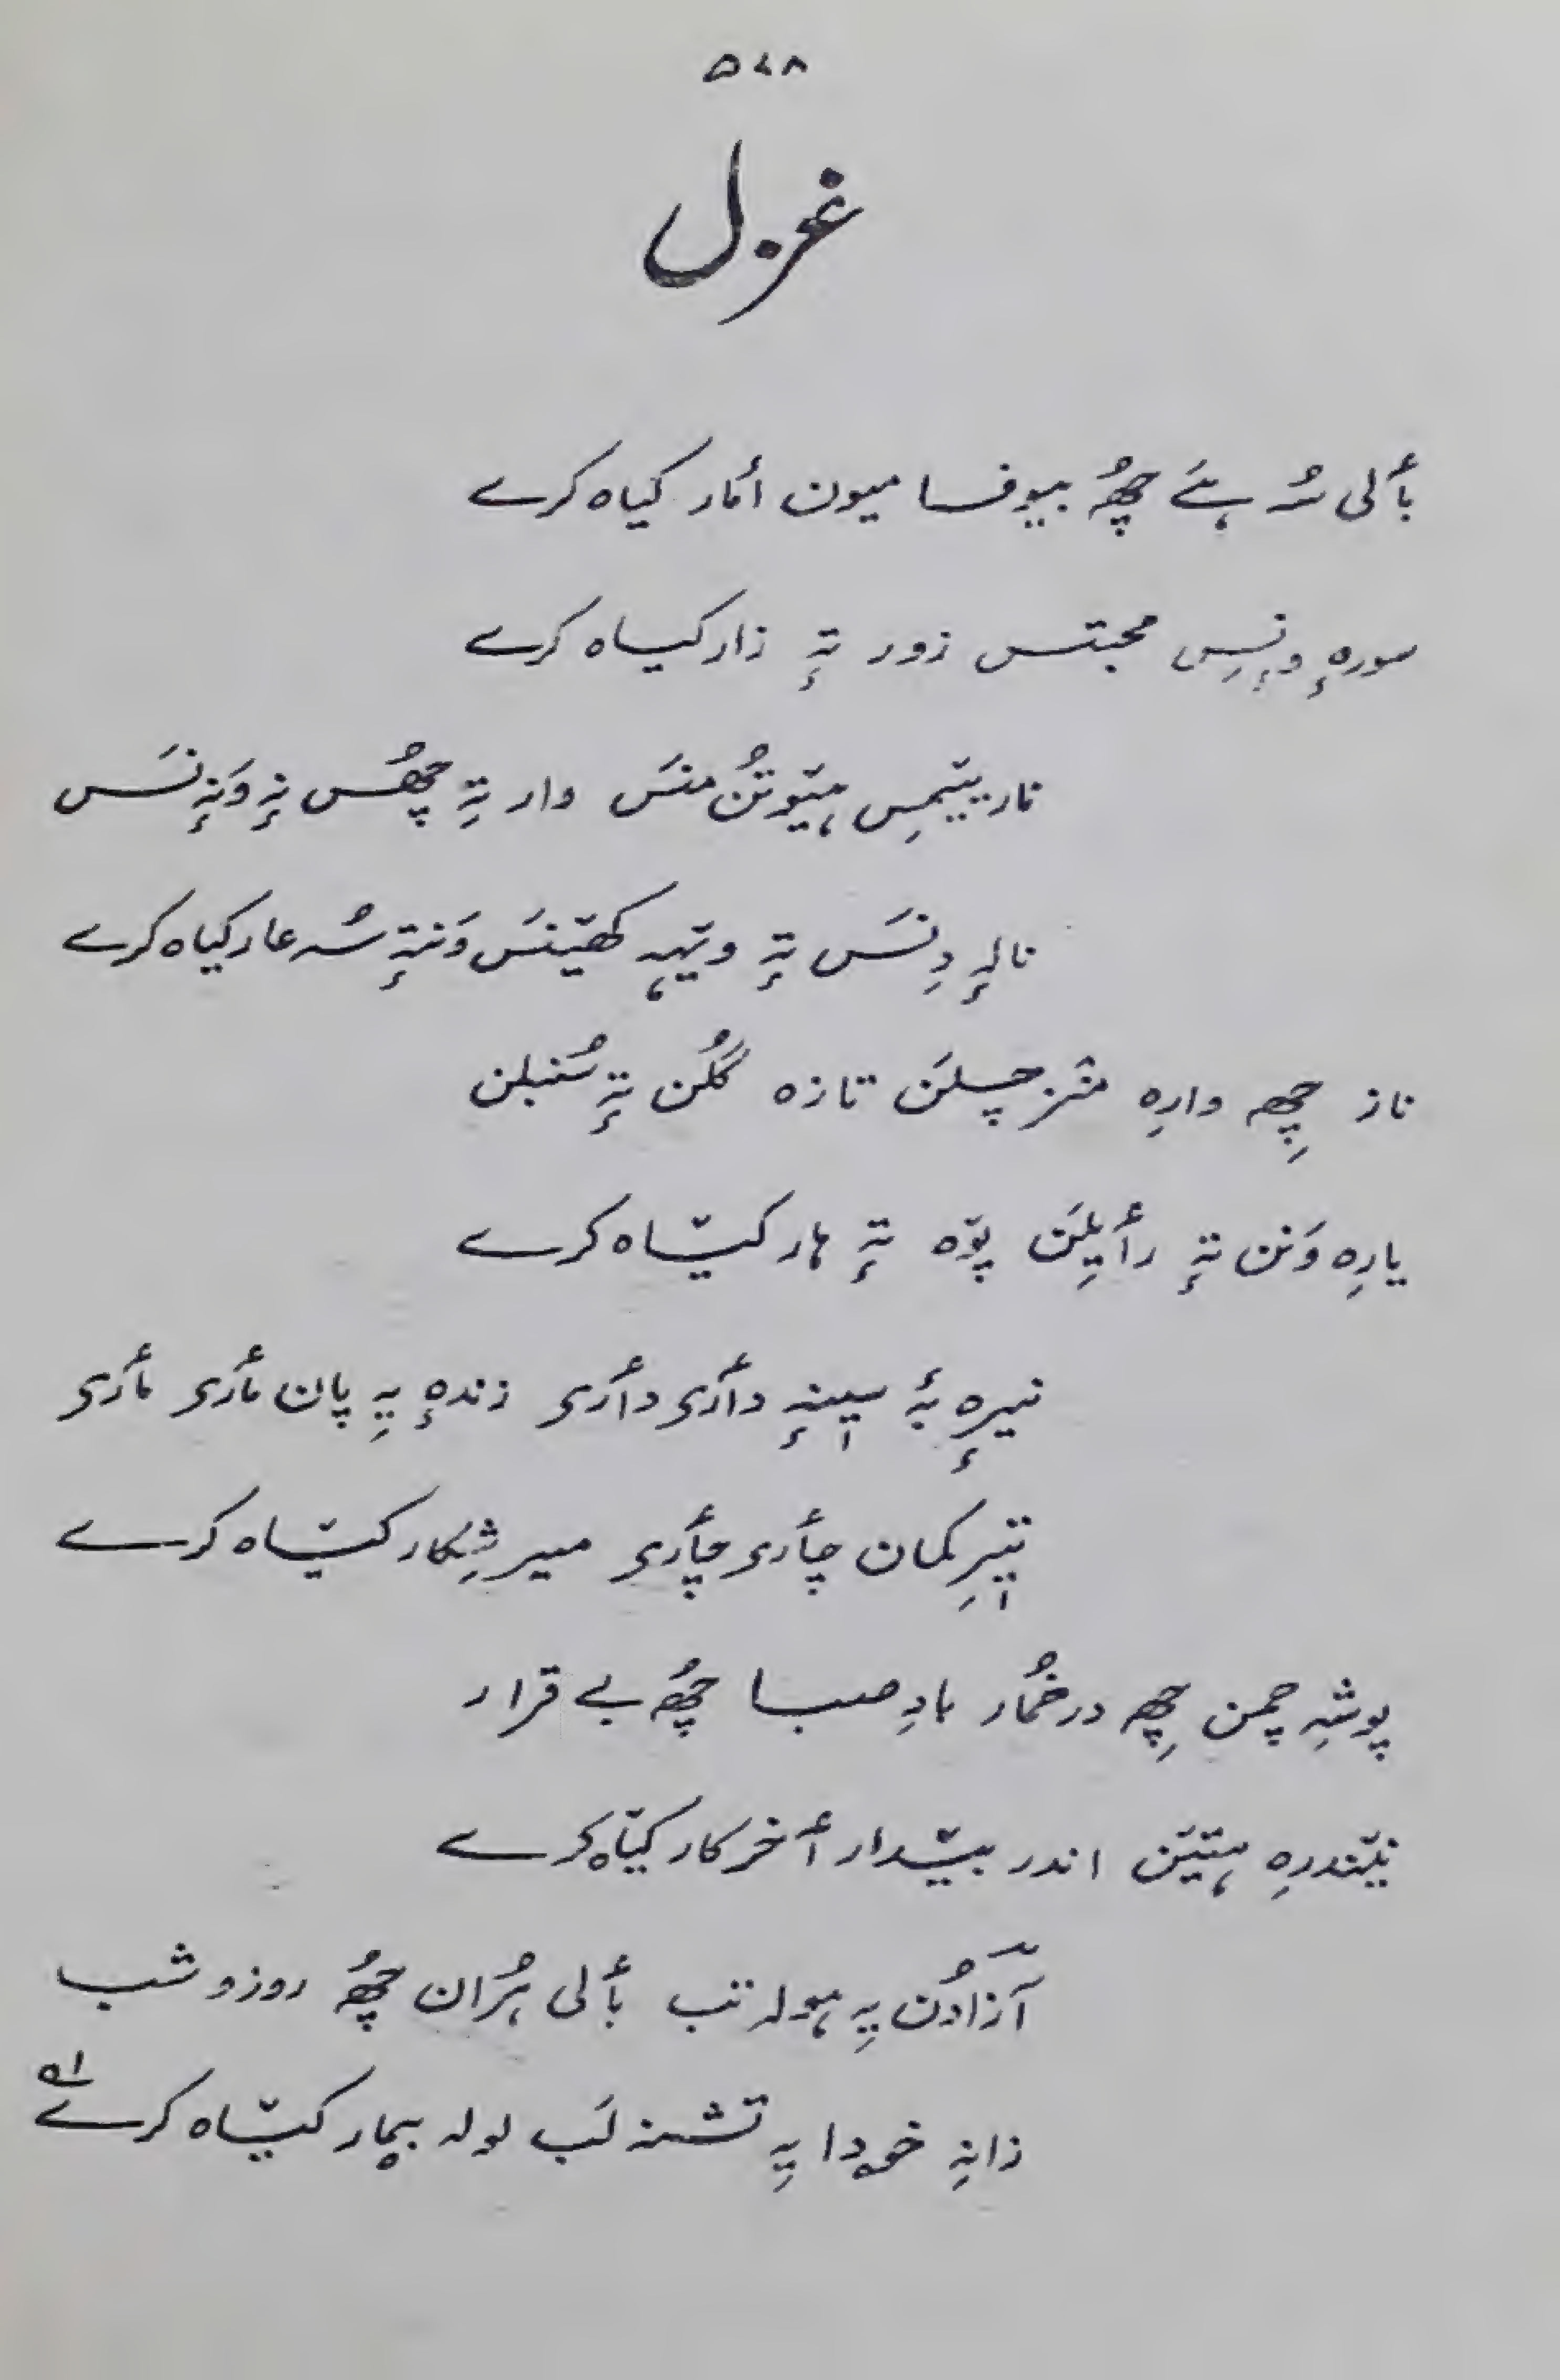 ۵۷۸
غزل
بٲلی سُہ ہے چھُ بیوفا میون امار کیاہ کرے
سورہٕ ونِس محبتس زور تہٕ زار کیاہ کرے
نار یتٚمِس ہیٚوتُن منَس وار تہٕ چھُس نہٕ وَنہٕ نَس
نالہٕ دِنَس تہٕ ویٚہہ کھیٚنَس وَنتہٕ سُہ عار کیاہ کرے
ناز چھِہ وارِہ منٛز چلَن تازہ گُلن تہٕ سُنبلن
یارِہ وَنن تہٕ رأیلِن پوٚہ تہٕ ہار کیٚاہ کرے
نیرِہٕ بہٕ سیٖنہٕ دأرۍ دأرۍ زندہٕ یہِ پان مأرۍ مأرۍ
تیٖرِ کمان چأرۍ چأرۍ میر شِکار کیٚاہ کرے
پوشہِ چمن چھِہ در خُمار بادِ صبا چھُ بے قرار
نیٚندرِہ ہیٚتیٚن اندر بیٚدار أخر کار کیٚاہ کرے
آزادُن یہِ ہولہ تب بٲلی ہُران چھُ روز و شب
زانہِ خودا یہِ تشنہ لَب لولہ بیمار کیٚاہ کرے ۵۱